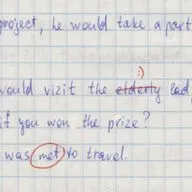 project, he would take a part
:)
would vizit the elderly lad
if you won the prize?
was met to travel.